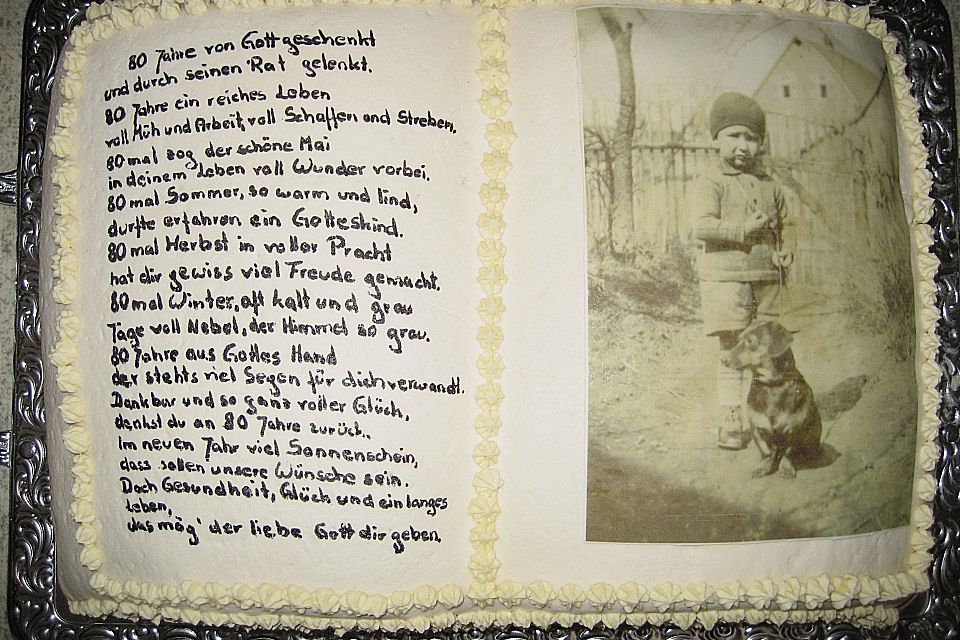 80 Jahre von Gott geschenkt
und durch seinen Rat gelenkt.
80 Jahre ein reiches Leben
voll Müh und Arbeit, voll Schaffen und Streben.
80 mal zog der schöne Mai
in deinem Leben voll Wunder vorbei.
80 mal Sommer, so warm und lind,
durfte erfahren ein Gotteskind.
80 mal Herbst in voller Pracht
hat dir gewiss viel Freude gemacht.
80 mal Winter, oft kalt und grau
Tage voll Nebel, der Himmel so grau.
80 Jahre aus Gottes Hand
der stehts viel Segen für dich verwandt.
Dankbar und so ganz voller Glück,
denkst du an 80 Jahre zurück.
Im neuen Jahr viel Sonnenschein,
dass sollen unsere Wünsche sein.
Doch Gesundheit, Glück und ein langes
Leben,
das mög' der liebe Gott dir geben.